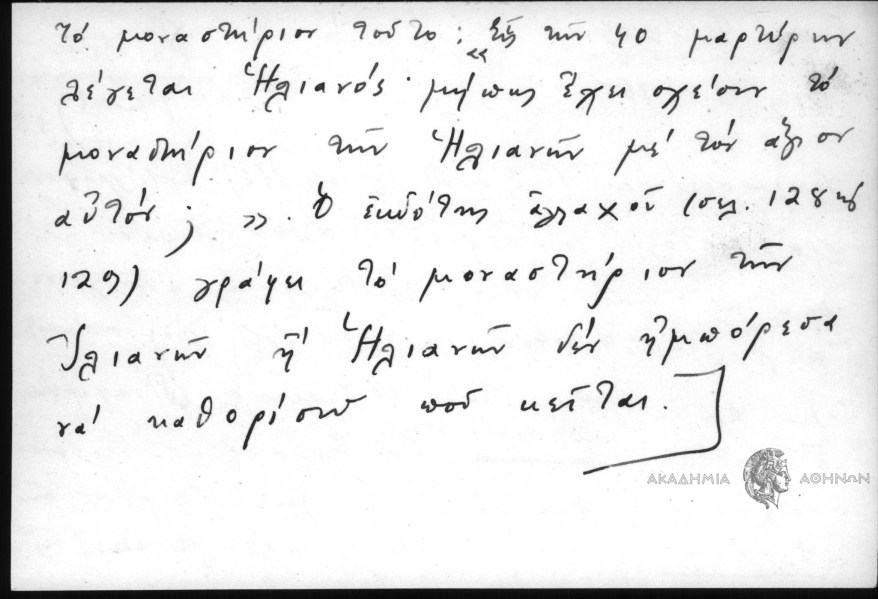 τὸ μοναστήριον τοῦτο; « Εἷς τῶν 40 μαρτύρων
λέγεται Ἠλιανός· μήπως ἔχει σχέσιν τὸ
μοναστήριον τῶν Ἠλιανῶν μὲ τὸν ἅγιον
αὐτόν; ». Ὁ ἐκδότης ἀλλαχοῦ (σελ. 128 καὶ
129) γράφει τὸ μοναστήριον τῶν
Ἰλιανῶν ἢ Ἠλιανῶν δὲν ἠμπόρεσα
νὰ καθορίσω ποῦ κεῖται.]
ΑΚΑΔΗΜΙΑ ΑΘΗΝΩΝ